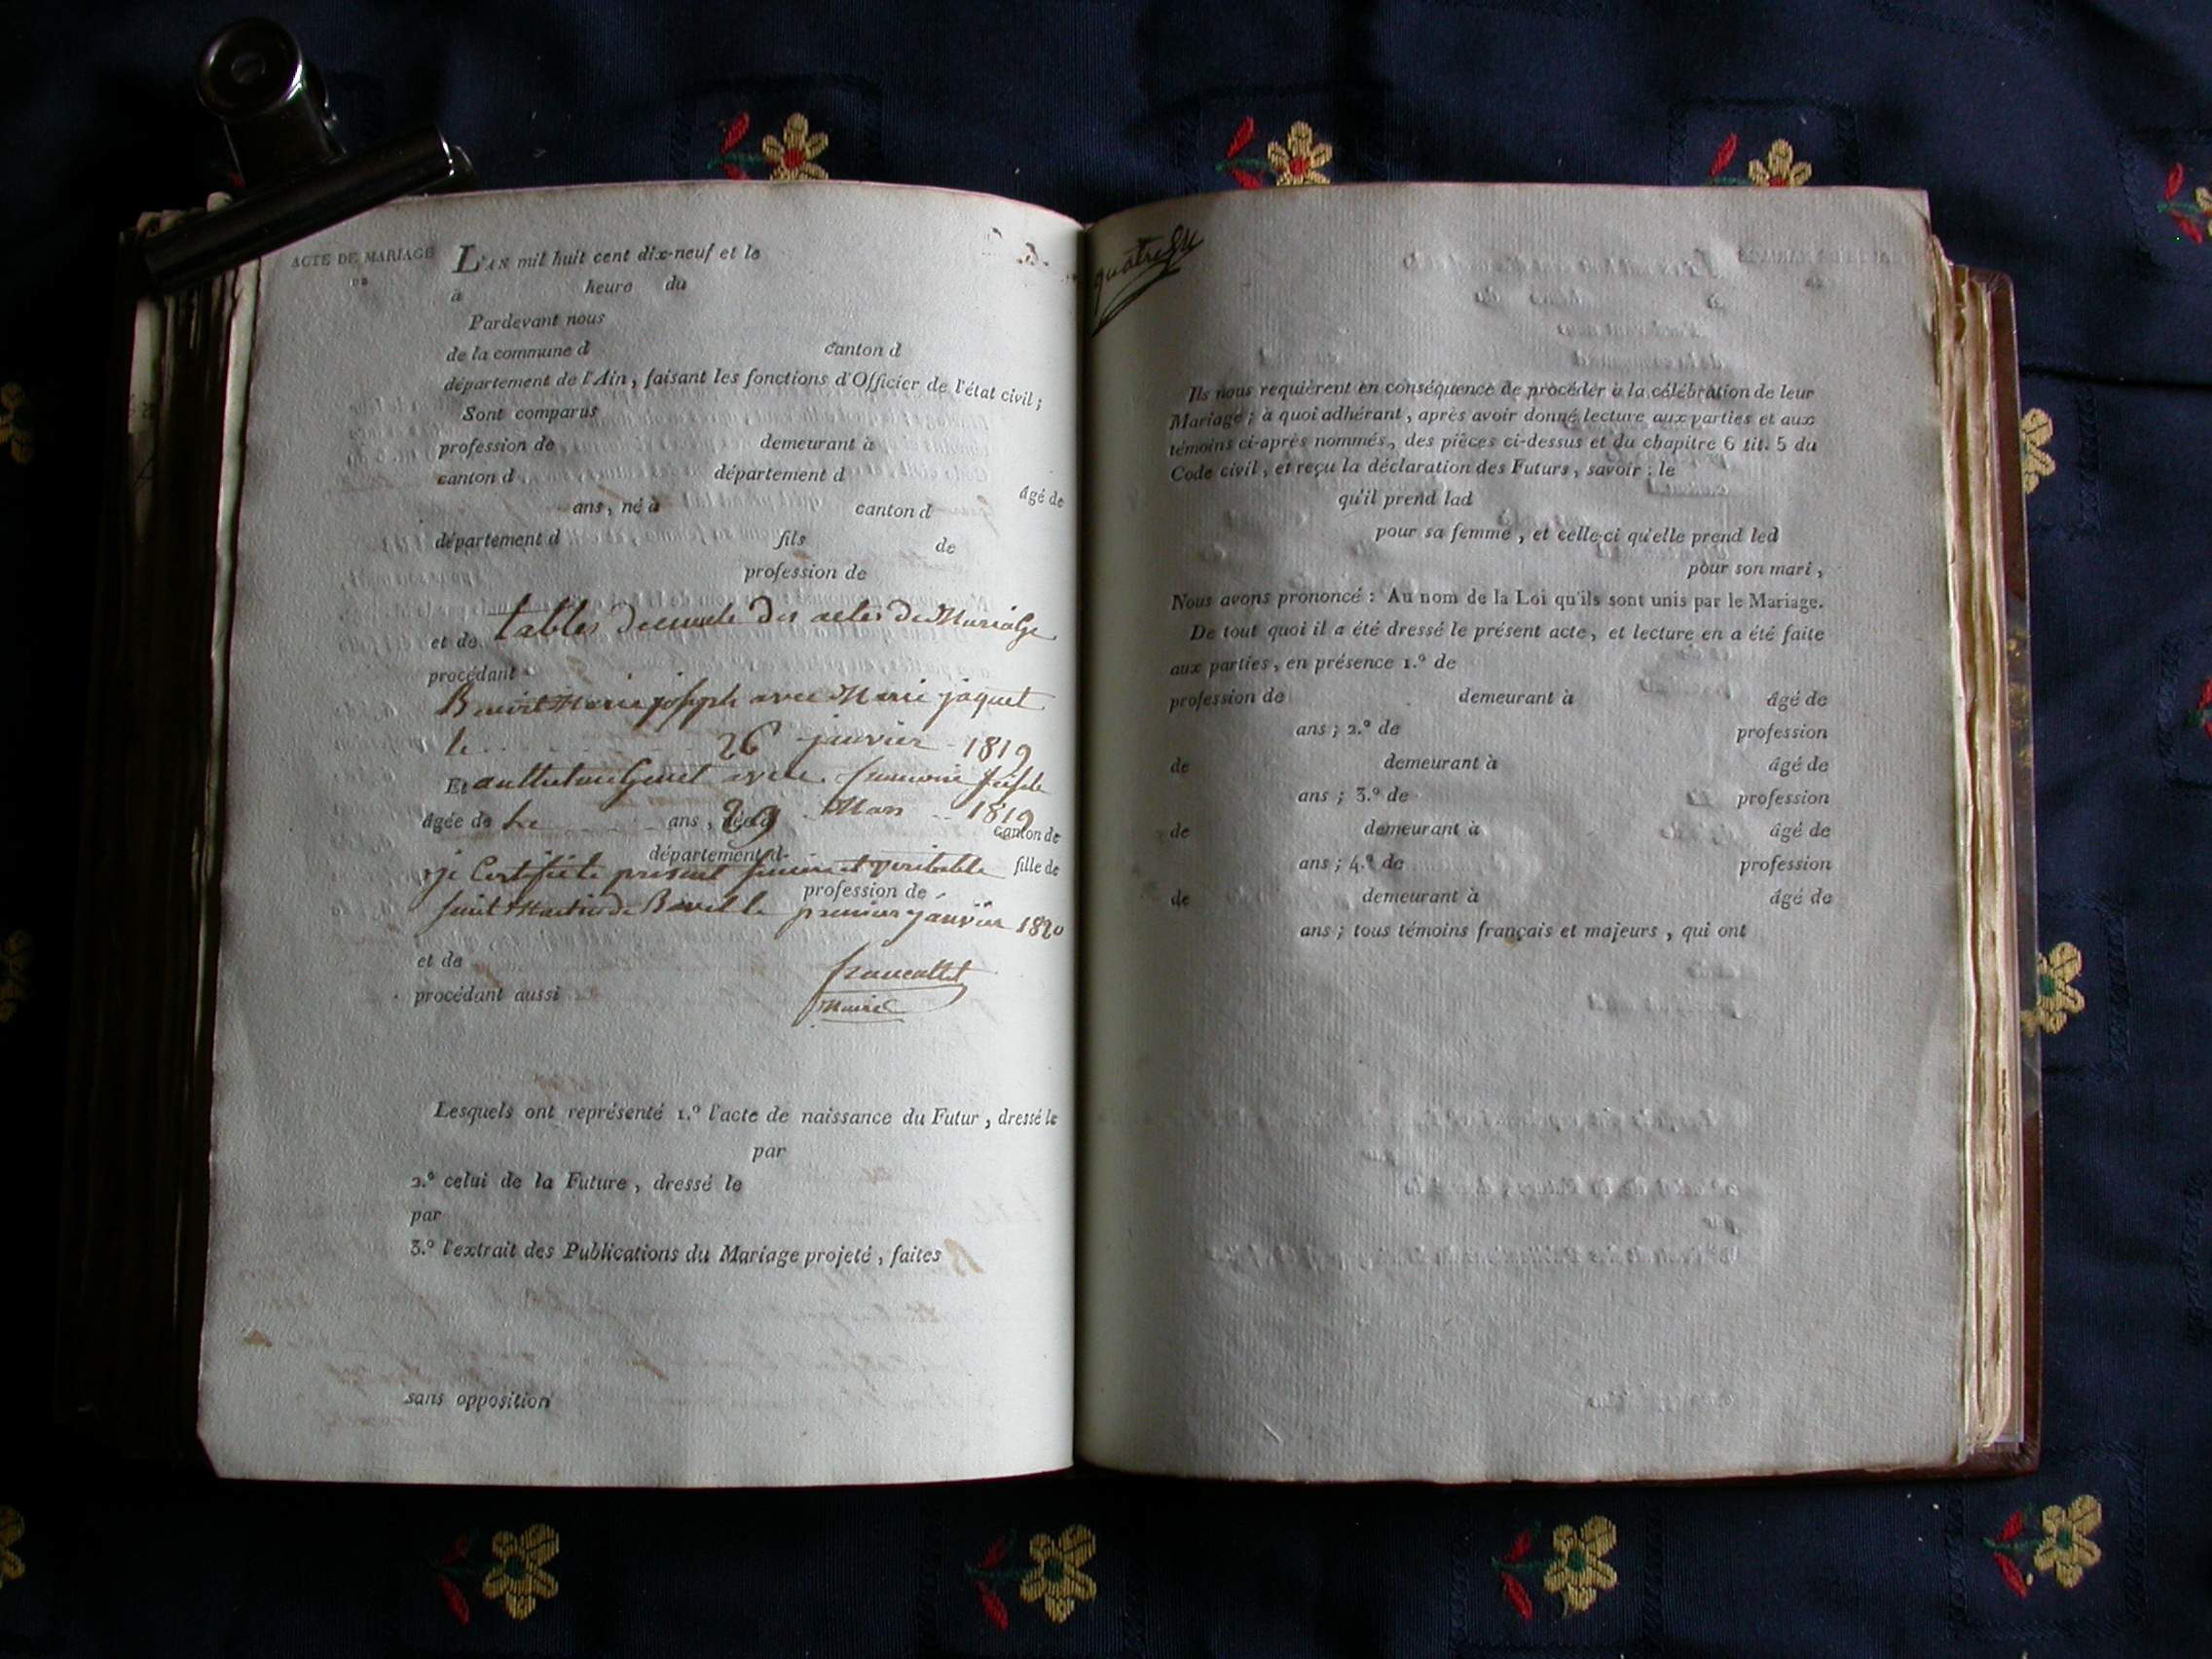 ACTE DE MARIAGE
DE
L'AN mil huit cent dix-neuf et le
à heure du
Pardevant nous
de la commune d canton d
département de l'Ain, faisant les fonctions d'Officier de l'état civil;
Sont comparus
profession de demeurant à
canton d département d
âgé de
ans, né à canton d
département d fils de
profession de
tables des actes de Mariage
et de
procédant
Benoit Marie joseph avec Marie jaquet
le 26 janvier 1819
Et avec
âgée de ans, née à
Le 29 Mars 1819
canton de
département d
fille de
je Certifie le présent sincere et veritable
profession de
saint Martin de Bavel le premier janvier 1820
et de
francallet
procédant aussi
Maire
Lesquels ont représenté 1.º l'acte de naissance du Futur, dressé le
par
2.º celui de la Future, dressé le
par
3.º l'extrait des Publications du Mariage projeté, faites
sans opposition
quatre
Ils nous requièrent en conséquence de procéder à la célébration de leur
Mariage; à quoi adhérant, après avoir donné lecture aux parties et aux
témoins ci-après nommés, des pièces ci-dessus et du chapitre 6 tit. 5 du
Code civil, et reçu la déclaration des Futurs, savoir: le
qu'il prend lad
pour sa femme, et celle-ci qu'elle prend led
pour son mari,
Nous avons prononcé: Au nom de la Loi qu'ils sont unis par le Mariage.
De tout quoi il a été dressé le présent acte, et lecture en a été faite
aux parties, en présence 1.º de
profession de demeurant à âgé de
ans; 2.º de profession
de demeurant à âgé de
ans; 3.º de profession
de demeurant à âgé de
ans; 4.º de profession
de demeurant à âgé de
ans; tous témoins français et majeurs, qui ont